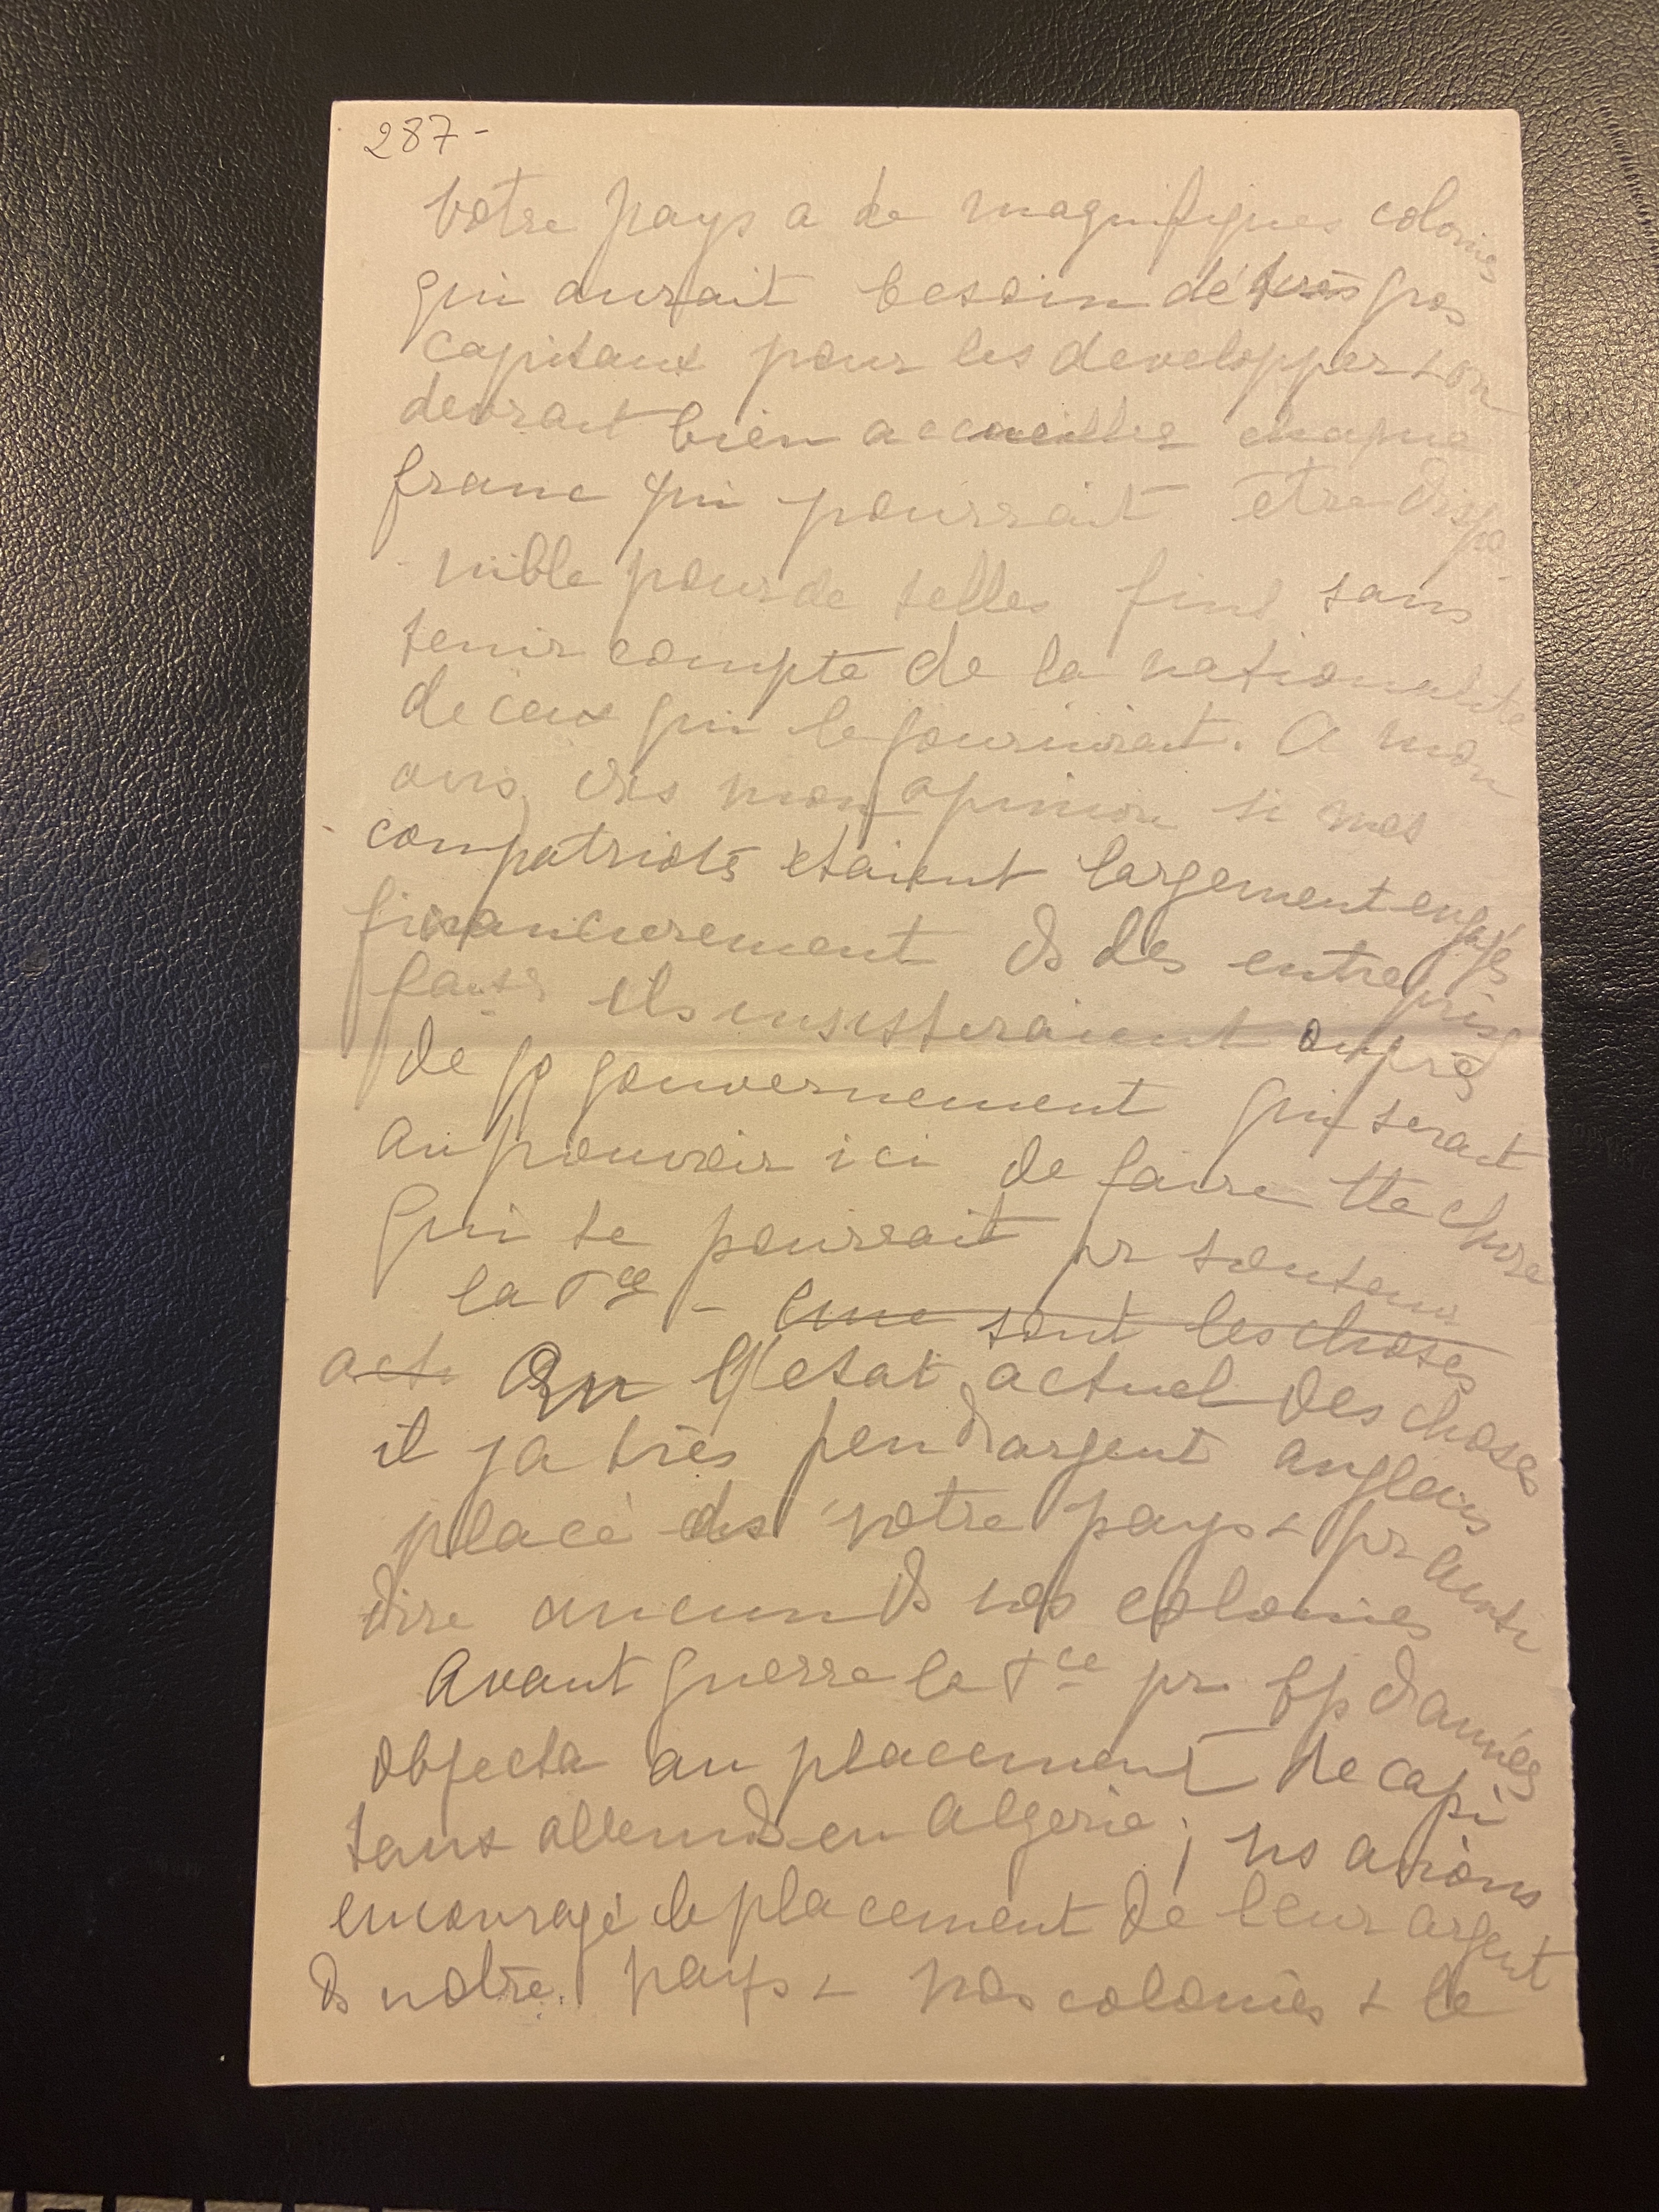 287-
Votre pays a de magnifiques colonies
qui aurait besoin de très gros
capitaux pour les developper + on
devrait bien accueillir chaque
franc qui pourrait être dispo
nible pour de telles fins sans
tenir compte de la nationalité
de ceux qui le fourniraient. A mon
avis, ds mon opinion si mes
compatriotes etaient largement engagés
financierement ds des entreprises
ils insisteraient auprès
de gouvernement qui serait
au pouvoir ici de faire tte chose
qui se pourrait pr soutenir
la Fce - sont les choses
act. En l'etat actuel des choses
il y a très peu d'argent anglais
placé ds votre pays + pr ainsi
dire aucun ds vos colonies
Avant guerre la Fce pr bp d'années
objecta au placement de capi
taux allemds en Algerie ; ns avions
encouragé le placement de leur argent
ds notre pays + nos colonies + le